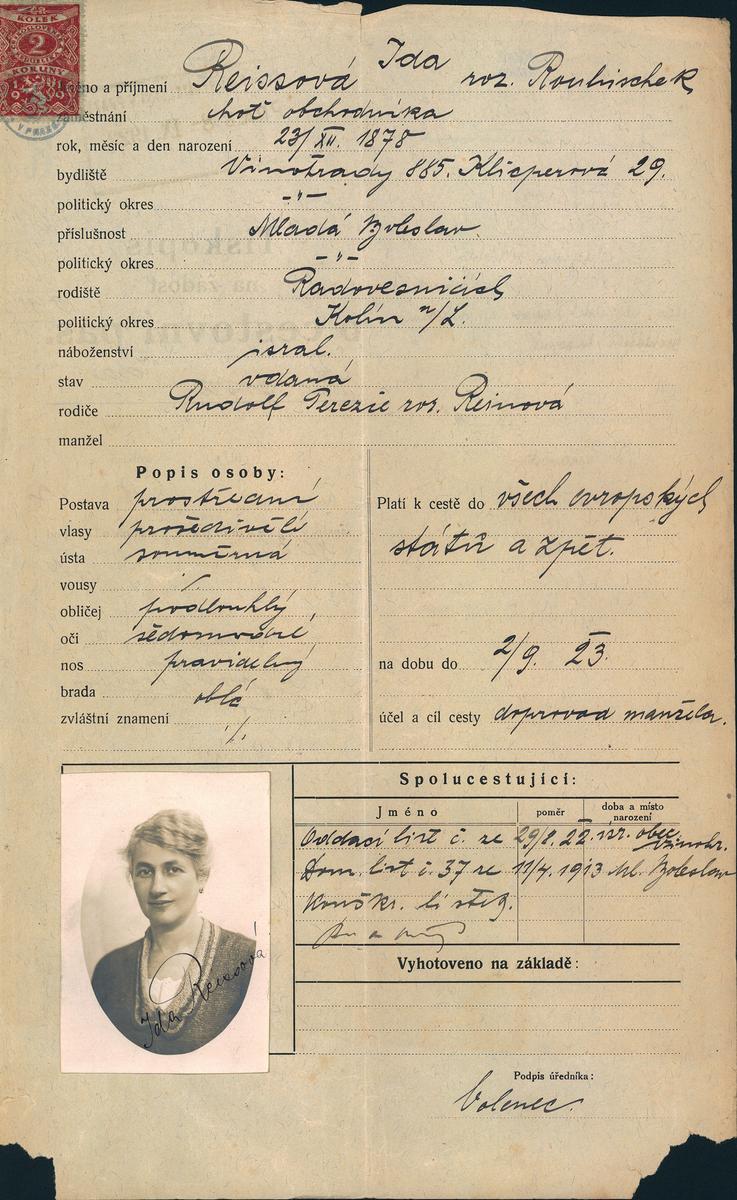 KOLEK
2
KORUNY
V PRAZE
Jméno a příjmení Reissová Ida roz. Roubischek
zaměstnání choť obchodníka
rok, měsíc a den narození 23/XII. 1878
bydliště Vinohrady 885. Klicperová 29.
politický okres -"-
příslušnost Mladá Boleslav
politický okres -"-
rodiště Radovesnicích
politický okres Kolín n/L.
náboženství isral.
stav vdaná
rodiče Rudolf Terezie roz. Reinová
manžel
Popis osoby:
Postava prostřední
vlasy prošedivělé
ústa souměrná
vousy /
obličej podlouhlý
oči šedomodré
nos pravidelný
brada oblá
zvláštní znamení ./.
Platí k cestě do všech evropských
států a zpět.
na dobu do 2/9. 23.
účel a cíl cesty doprovod manžela.
Spolucestující:
Jméno poměr doba a místo narození
Oddací list č. ze 29/8. 22. isr. obec Vinohr.
Dom. list č. 37 ze 11/4. 1913 Ml. Boleslav
Konskr. list
Vyhotoveno na základě:
Ida Reissová
Podpis úředníka:
Volenec.